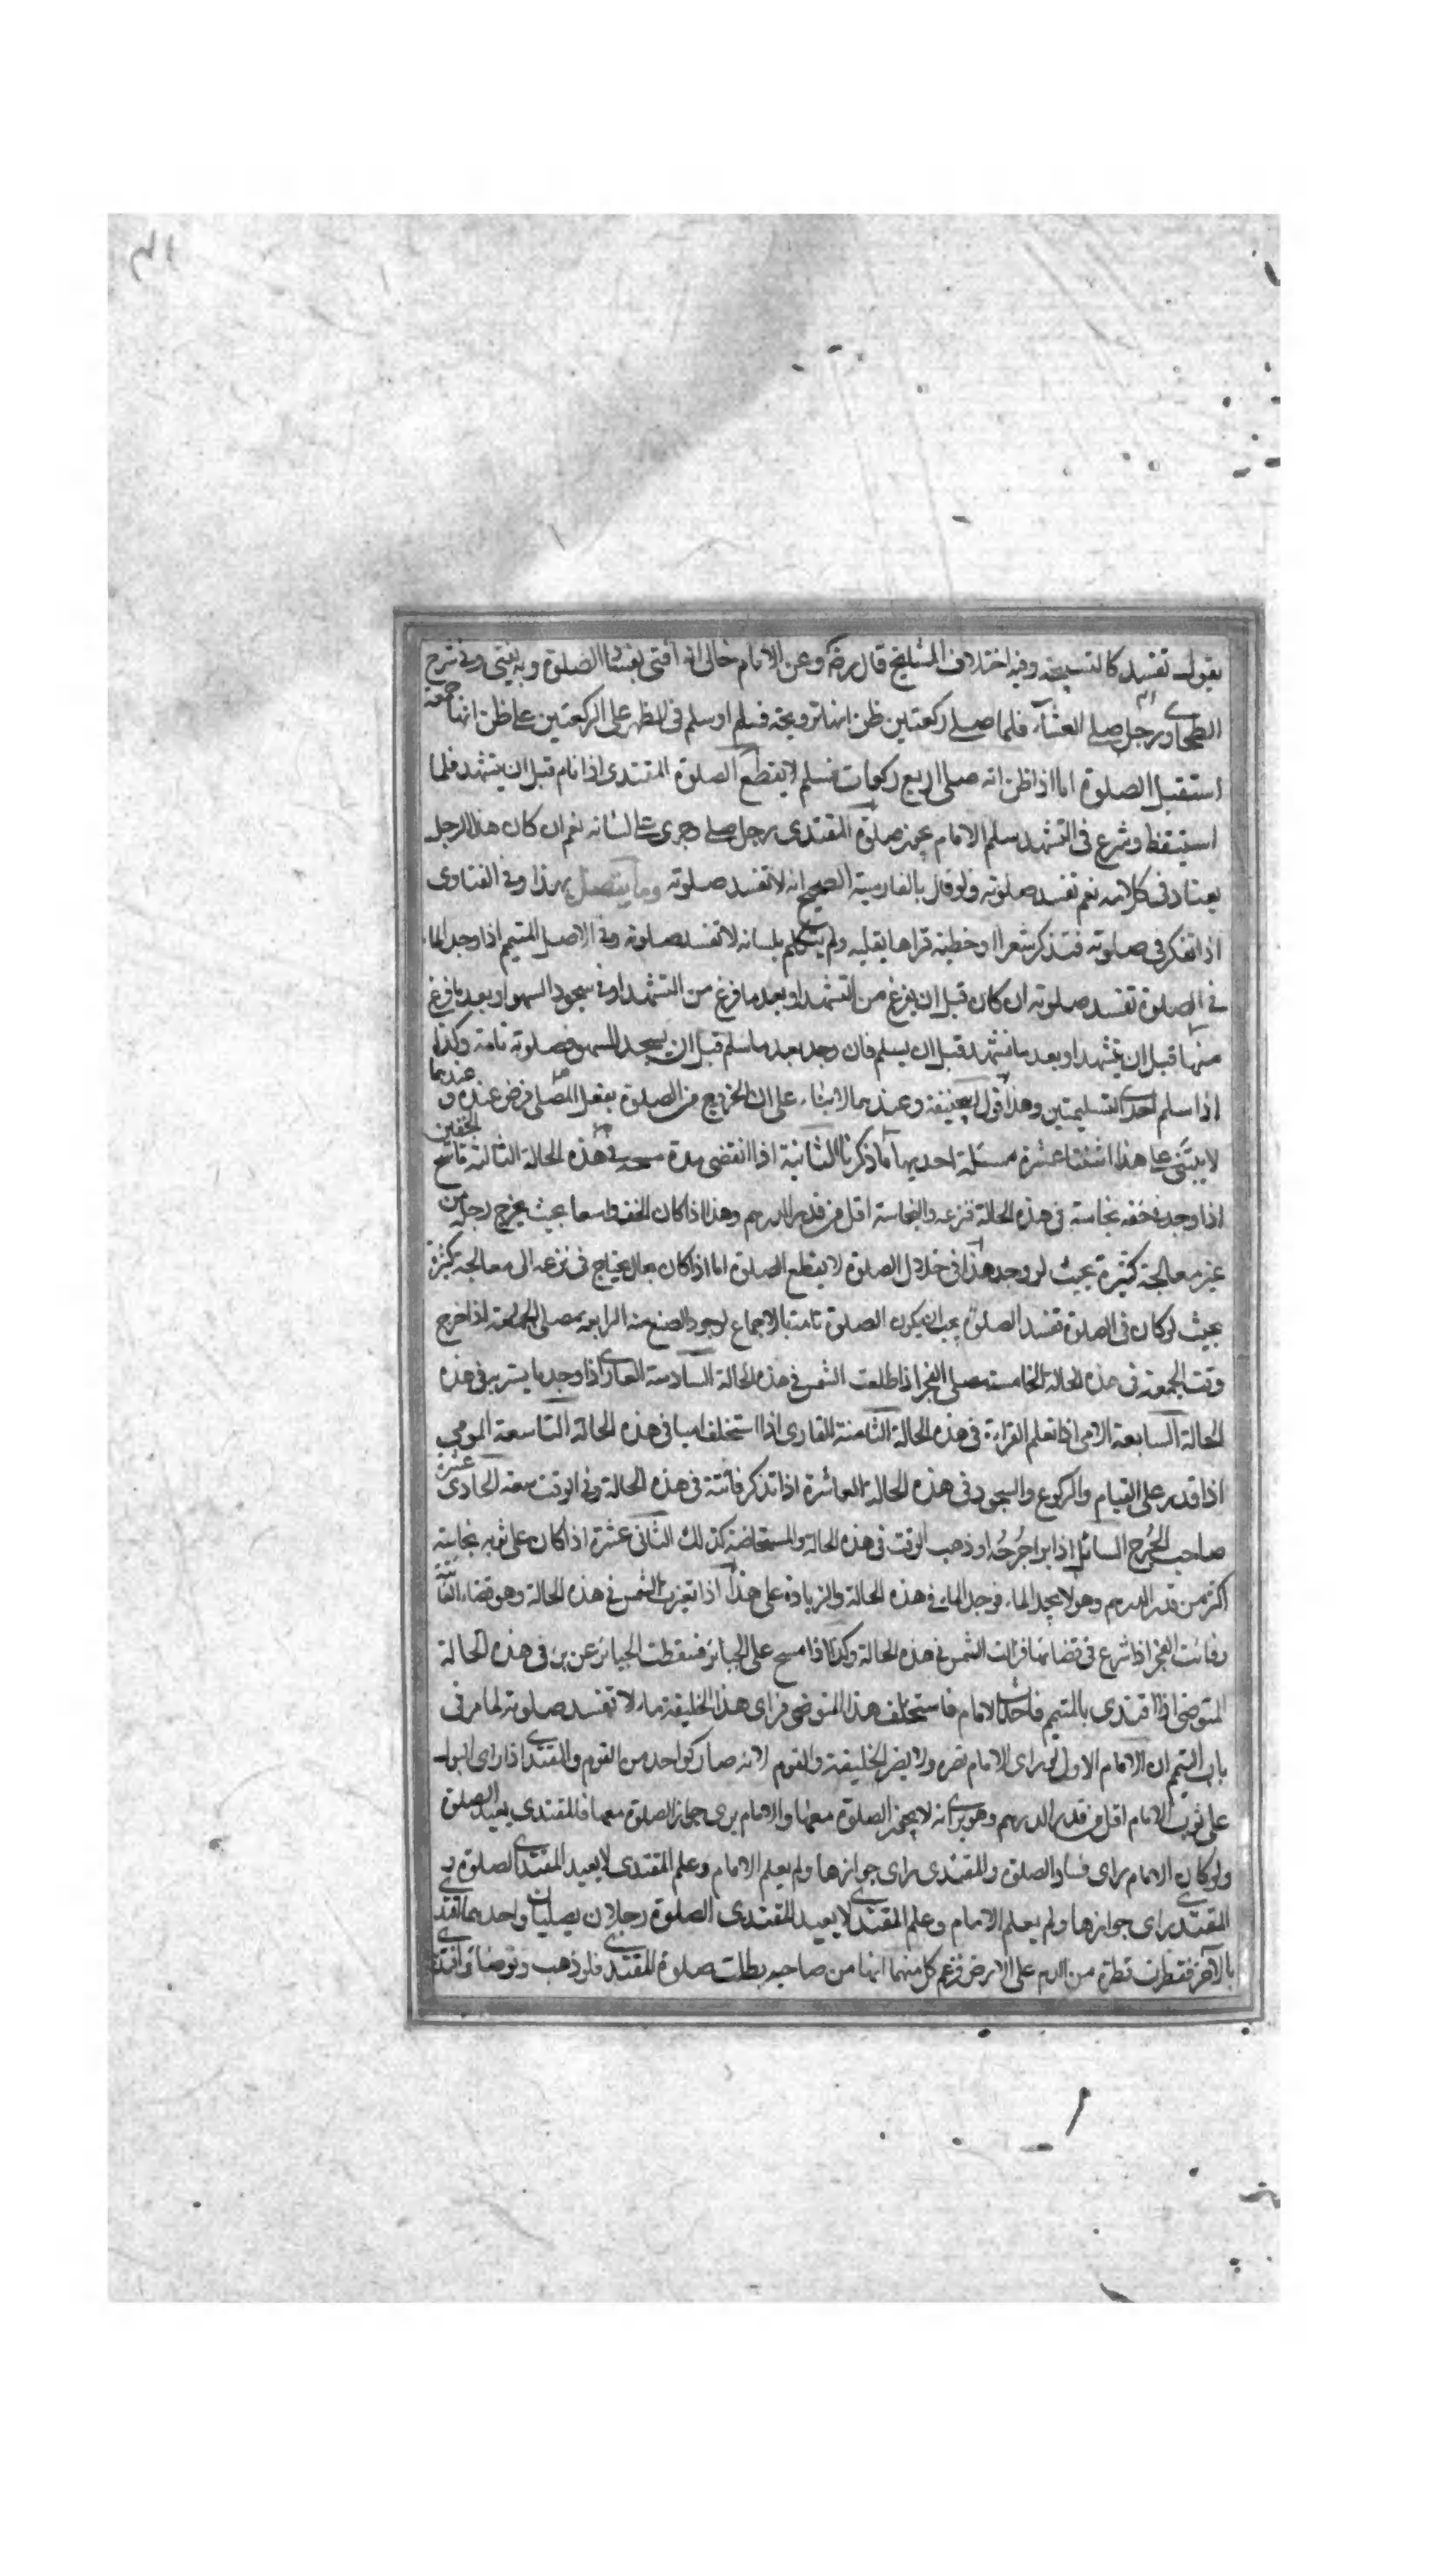 يقول تفسد كالتسبيحة وفيه اختلاف المشايخ قال رضه وعن الامام خالى انه افتى بفساد الصلوة وبه يفتى وفى شرح
الطحاوى رجل صلى العشاء فلما صلى ركعتين ظن انها ترويحة فسلم او سلم فى الظهر على الركعتين على ظن انها جمعة
استقبل الصلوة اما اذا ظن انه صلى اربع ركعات فسلم لا يقطع الصلوة المقتدى اذا نام قبل ان يتشهد فلما
استيقظ وشرع فى التشهد سلم الامام يجوز صلوة المقتدى رجل صلى وجرى على لسانه نعم ان كان هذا الرجل
يعتاد فى كلامه نعم تفسد صلوته ولو قال بالفارسية الصحيح انه لا تفسد صلوته وما يتصل بهذا وفى الفتاوى
اذا تفكر فى صلوته فتذكر شعرا او خطبة قراها بقلبه ولم يتكلم بلسانه لا تفسد صلوته وفى الاصل المتيمم اذا وجد الماء
فى الصلوة تفسد صلوته ان كان قبل ان يفرغ من التشهد او بعد ما فرغ من التشهد او فى سجود السهو او بعد ما فرغ
منها قبل ان يتشهد او بعد ما تشهد قبل ان يسلم فان وجد بعد ما سلم قبل ان يسجد للسهو فصلوته تامة وكذا
اذا سلم احدى التسليمتين وهذا قول ابى حنيفة وعندهما لا بناء على ان الخروج من الصلوة بفعل المصلى فرض عنده وعندهما
لا يبتنى على هذا اثنتا عشرة مسئلة احديها ما ذكرنا الثانية اذا انقضى مدة مسحه فى هذه الحالة الثالثة ماسح الخفين
اذا وجد فى خفه نجاسة فى هذه الحالة فنزعه والنجاسة اقل من قدر الدرهم وهذا اذا كان الخف واسعا بحيث يخرج رجله من
غير معالجة كثيرة بحيث لو وجد هذا فى خلال الصلوة لا يقطع الصلوة اما اذا كان بحال يحتاج فى نزعه الى معالجة كثيرة
بحيث لو كان فى الصلوة تفسد الصلوة يجب ان يكون الصلوة تامة بالاجماع لوجود الصنع منه الرابعة مصلى الجمعة اذا خرج
وقت الجمعة فى هذه الحالة الخامسة مصلى الفجر اذا طلعت الشمس فى هذه الحالة السادسة العارى اذا وجد ما يستر به فى هذه
الحالة السابعة الامى اذا تعلم القراءة فى هذه الحالة الثامنة القارى اذا استخلف اميا فى هذه الحالة التاسعة المومى
اذا قدر على القيام والركوع والسجود فى هذه الحالة العاشرة اذا تذكر فائتة فى هذه الحالة وفى الوقت سعة الحادى عشرة
صاحب الجرح السائل اذا برا جرحه او ذهب الوقت فى هذه الحالة والمستحاضة كذلك الثانى عشرة اذا كان على ثوبه نجاسة
اكثر من قدر الدرهم وهو لا يجد الماء فوجد الماء فى هذه الحالة والزيادة على هذا اذا تغيرت الشمس فى هذه الحالة وهو قضاء
وفائت الفجر اذا شرع فى قضائها فزالت الشمس فى هذه الحالة وكذا اذا مسح على الجبائر فسقطت الجبائر عن برء فى هذه الحالة
المتوضى اذا اقتدى بالمتيمم فاحدث الامام فاستخلف هذا المتوضى فراى هذا الخليفة ماء لا تفسد صلوته لما مر فى
باب التيمم ان الامام الاول لو راى الامام تضره ولا يضر الخليفة والقوم لانه صار كواحد من القوم والمقتدى اذا راى البول
على ثوب الامام اقل من قدر الدرهم وهو يرى انه لا يجوز الصلوة معها والامام يرى جواز الصلوة معها فالمقتدى يعيد الصلوة
ولو كان الامام راى فساد الصلوة والمقتدى راى جوازها ولم يعلم الامام وعلم المقتدى لا يعيد المقتدى الصلوة
المقتدى راى جوازها ولم يعلم الامام وعلم المقتدى لا يعيد المقتدى الصلوة رجلان يصليان واحدهما اقتدى
بالآخر فقطرت قطرة من الدم على الارض فزعم كل منهما انها من صاحبه بطلت صلوة المقتدى فلو ذهب وتوضا واقتدى